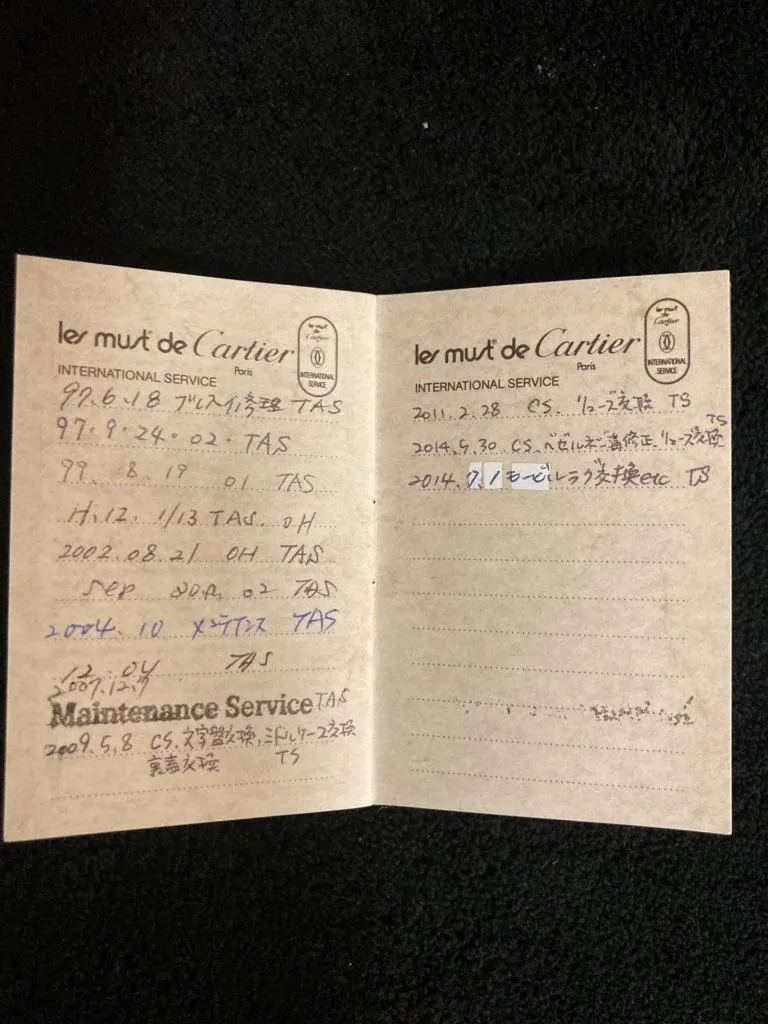 les must de Cartier
Paris
INTERNATIONAL SERVICE
les must de Cartier
INTERNATIONAL SERVICE
97.6.18 ブレスイ修理 TAS
97.9.24.02.TAS
99. 8. 19 01 TAS
H.12. 1/13 TAS. OH
2002.08.21 OH TAS
Sep 02 TAS
2004. 10 メンテナンス TAS
12 04 TAS
2007.12.7
Maintenance Service TAS
2009.5.8 CS.文字盤交換,ミドルケース交換
裏蓋交換 TS
les must de Cartier
Paris
INTERNATIONAL SERVICE
les must de Cartier
INTERNATIONAL SERVICE
2011.2.28 CS. リューズ交換 TS
2014.5.30 CS.ベゼルネジ歯修正.リューズ交換 TS
2014.7.1 モービルラグ交換etc TS